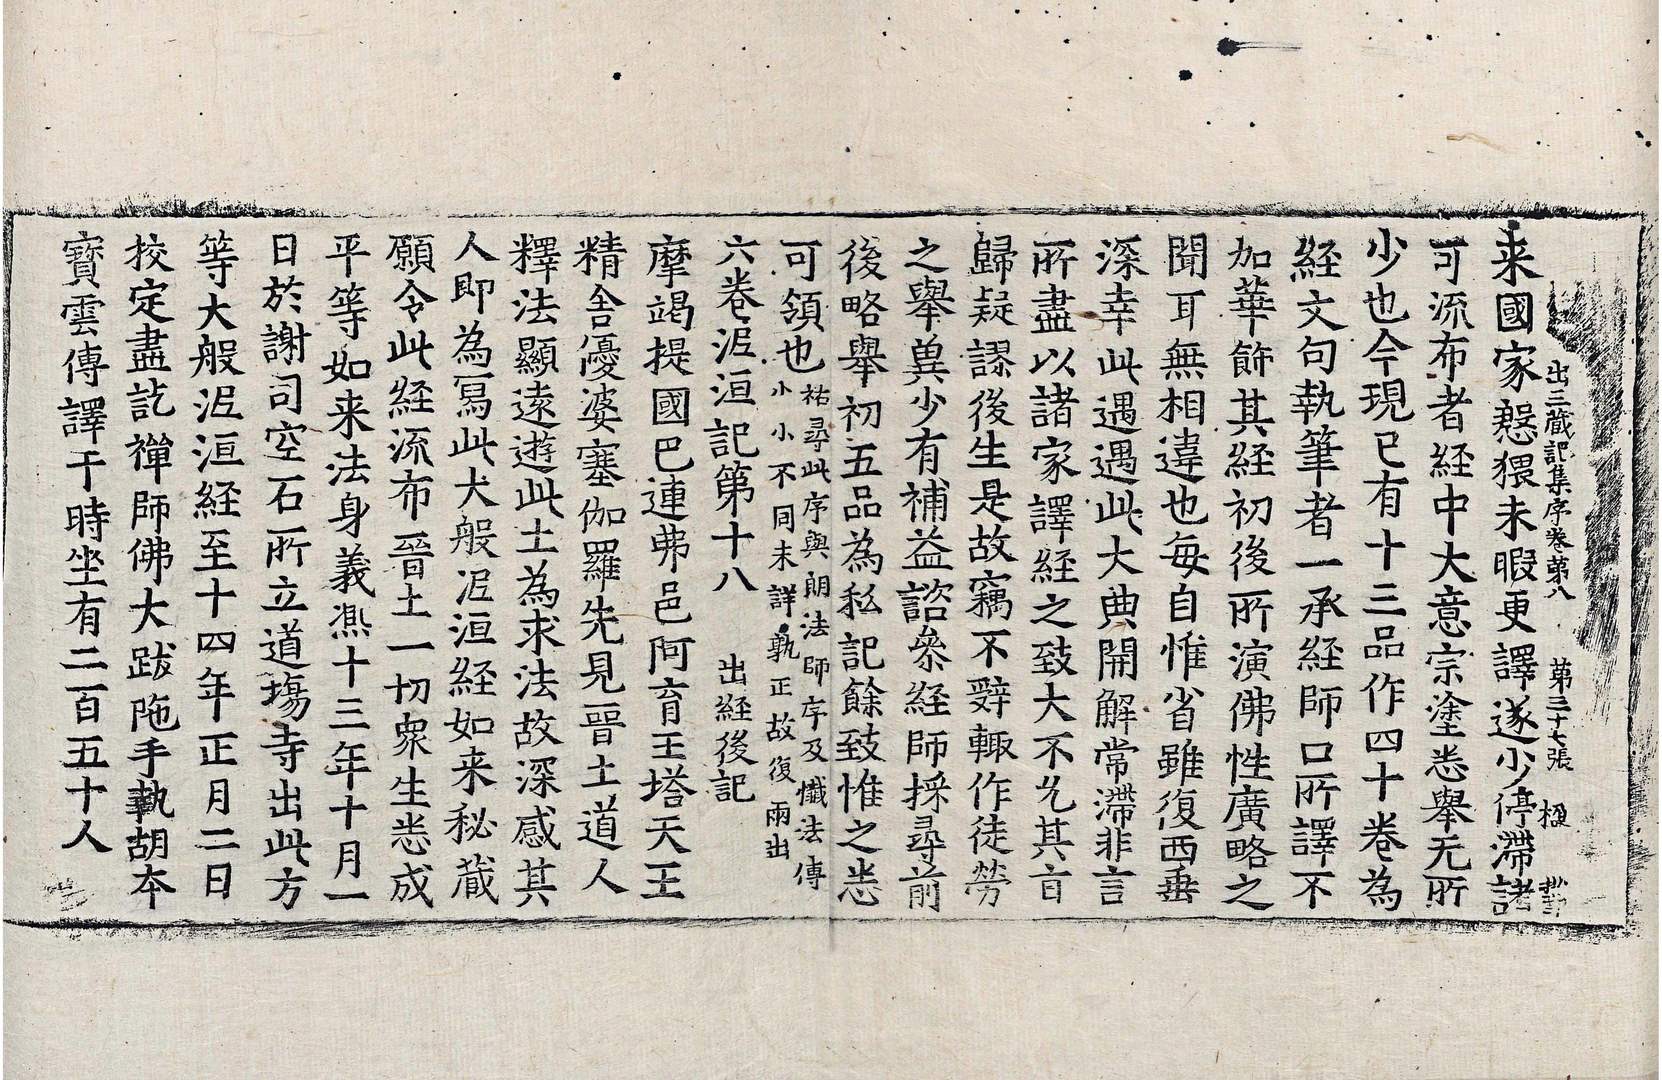 出三藏記集序卷第八　第三十七張
来國家慇猥未暇更譯遂少停滯諸
可流布者経中大意宗塗悉舉无所
少也今現已有十三品作四十卷為
経文句執筆者一承経師口所譯不
加華餝其経初後所演佛性廣略之
聞耳無相違也每自惟省雖復西垂
深幸此遇遇此大典開解常滯非言
所盡以諸家譯経之致大不允其旨
歸疑謬後生是故竊不辤輙作徒勞
之舉兾少有補益諮叅経師採尋前
後略舉初五品為私記餘致惟之悉
可領也祐尋此序與朗法師序及懺法傳
小小不同未詳孰正故復兩出
六卷泥洹記第十八　出経後記
摩竭提國巴連弗邑阿育王塔天王
精舍優婆塞伽羅先見晉土道人
釋法顯遠遊此土為求法故深感其
人即為寫此大般泥洹経如来秘藏
願令此経流布晉土一切衆生悉成
平等如来法身義熈十三年十月一
日於謝司空石所立道塲寺出此方
等大般泥洹経至十四年正月二日
挍定盡訖禪師佛大跋陁手執胡本
寳雲傳譯于時坐有二百五十人